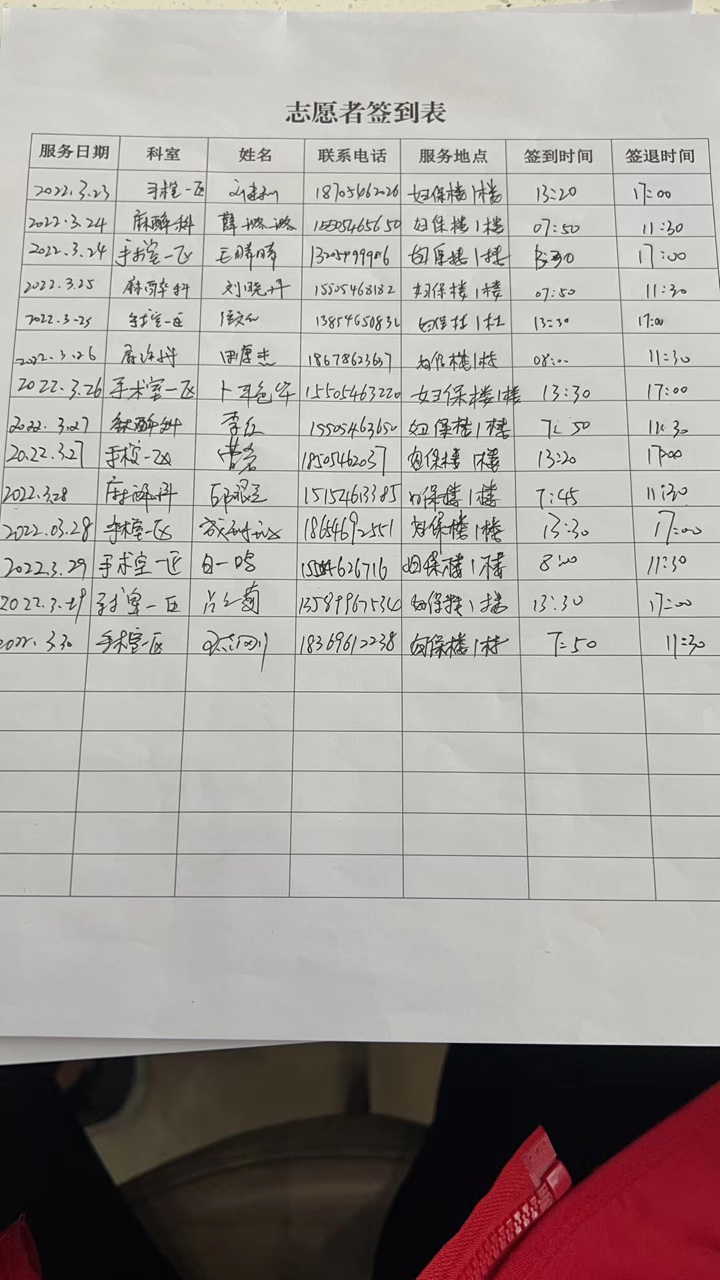 志愿者签到表
服务日期 科室 姓名 联系电话 服务地点 签到时间 签退时间
2022.3.23 手术室一区 18705462026 妇保楼1楼 13:20 17:00
2022.3.24 麻醉科 薛璐璐 15505465650 妇保楼1楼 07:50 11:30
2022.3.24 手术室一区 王晴晴 妇保楼1楼 13:30 17:00
2022.3.25 麻醉科 刘晓丹 15505468182 妇保楼1楼 07:50 11:30
2022.3.25 手术室一区 13854650832 妇保楼1楼 13:30 17:00
2022.3.26 麻醉科 田厚杰 18678623637 妇保楼1楼 08:00 11:30
2022.3.26 手术室一区 15505463220 妇保楼1楼 13:30 17:00
2022.3.27 麻醉科 李红 15505463650 妇保楼1楼 7:50 11:30
2022.3.27 手术室一区 18505462037 妇保楼1楼 13:20 17:00
2022.3.28 麻醉科 15154613385 妇保楼1楼 7:45 11:30
2022.03.28 手术室一区 18654692551 妇保楼1楼 13:30 17:00
2022.3.29 手术室一区 白一鸣 15564626716 妇保楼1楼 8:00 11:30
2022.3.29 手术室一区 13589967534 妇保楼1楼 13:30 17:00
2022.3.30 手术室一区 18369612238 妇保楼1楼 7:50 11:30